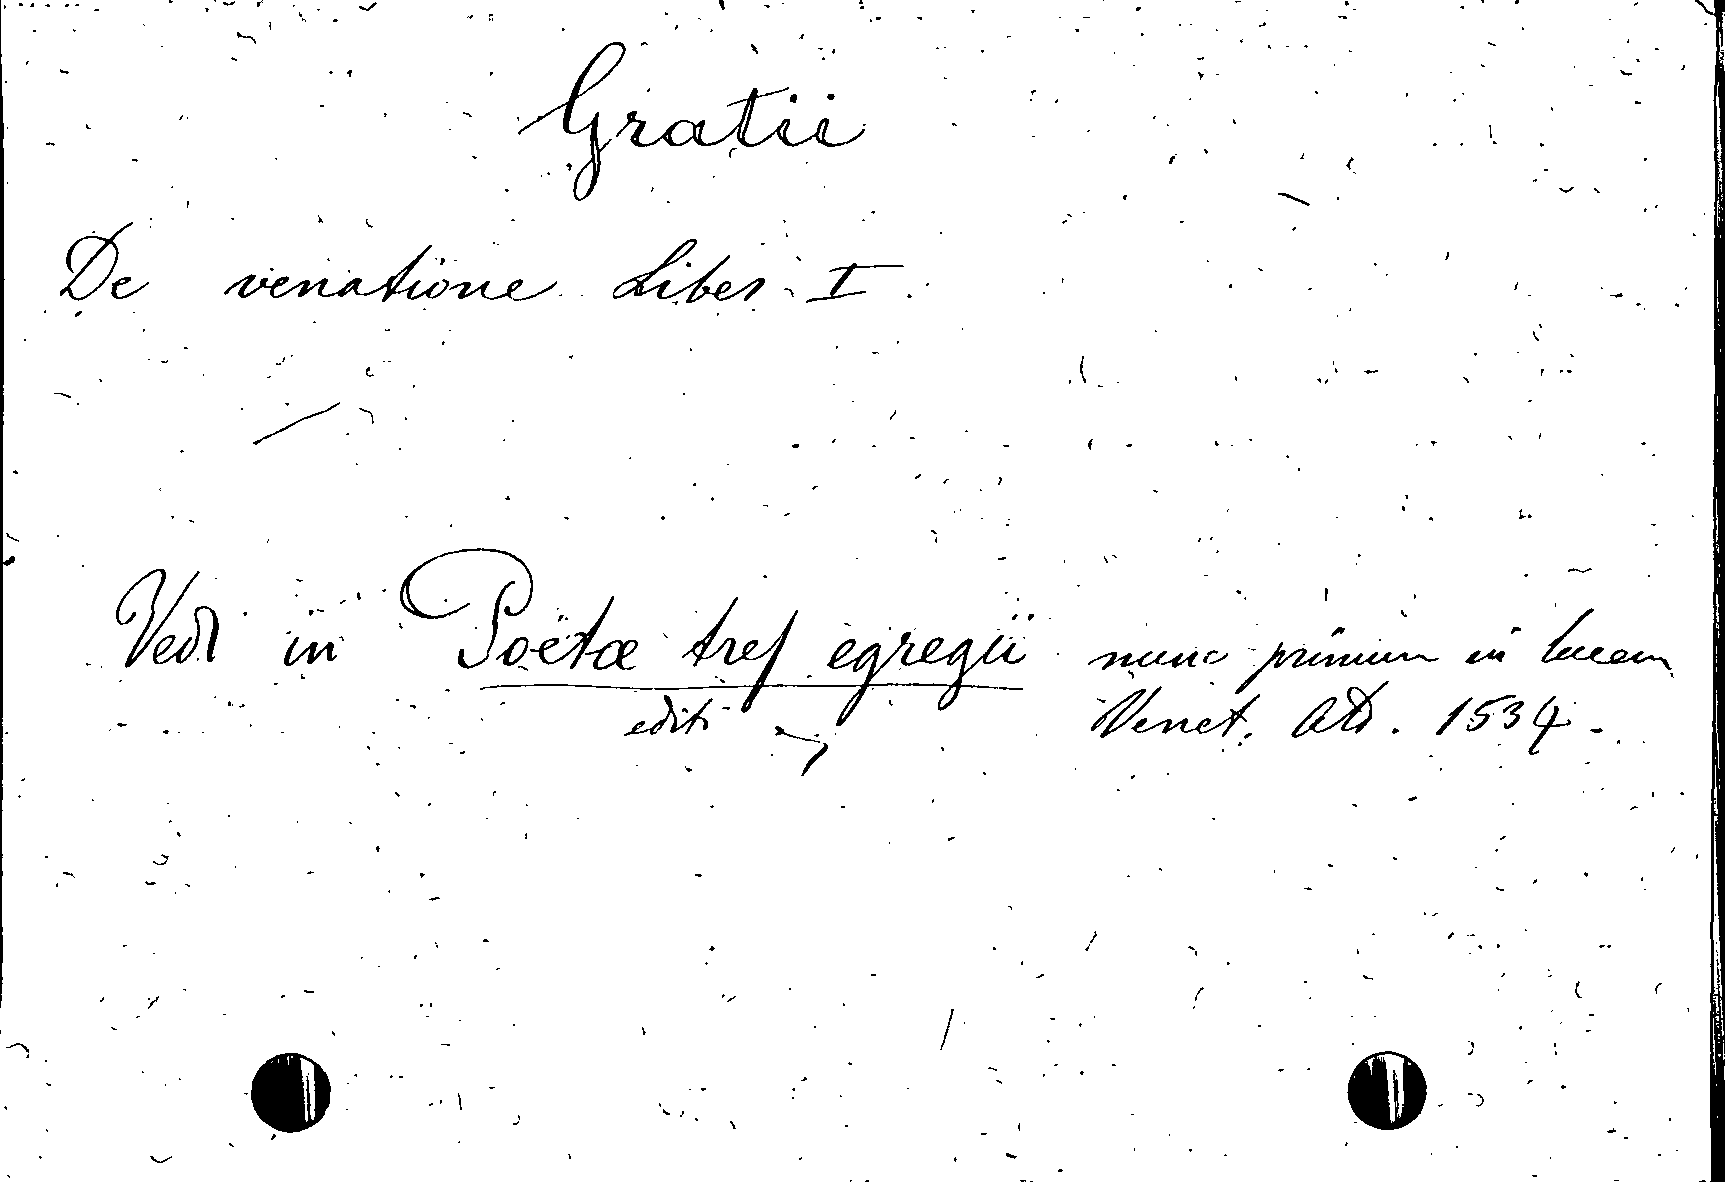 Gratii
De venatione Liber I.
Vedi in Poëtæ tres egregii nunc primum in lucem
editi Venet. Ald. 1534.